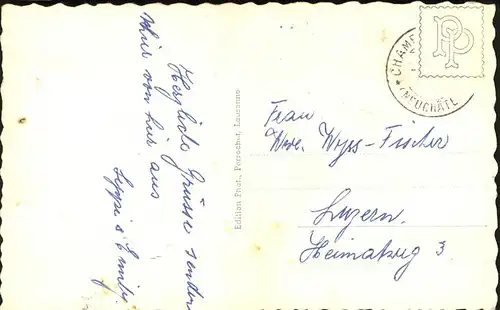 Herzliche Grüsse senden
von hier aus
Seppi & Emily
Edition Phot. Perrochet, Lausanne
CHAMP
(NEUCHATEL
PP
Frau
Wwe. Wyss-Fischer
Luzern.
Heimatweg 3